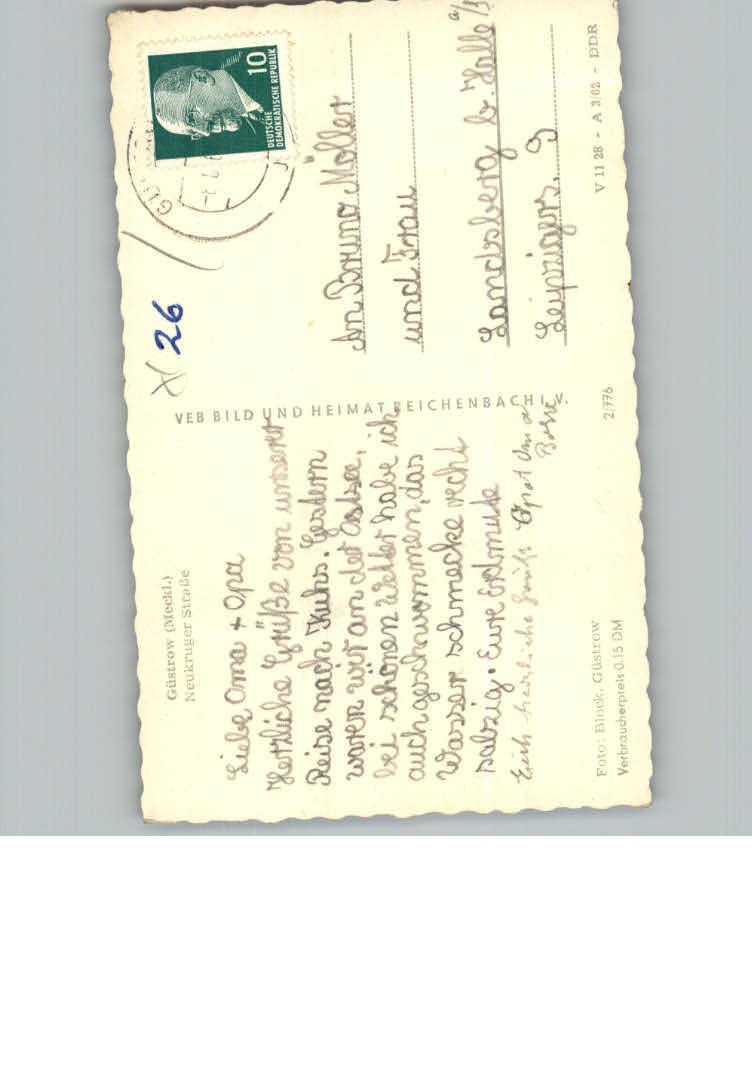 Güstrow (Meckl.)
Neukruger Straße
Liebe Oma + Opa
Herzliche Grüße von unserer
Reise nach Kuhs. Gestern
waren wir an der Ostsee,
bei schönen Wetter habe ich
auch geschwommen, das
Wasser schmecke recht
salzig. Eure Erdmute
Euch herzliche Grüße Opa t Oma
Foto: Block, Güstrow
Verbraucherpreis 0.15 DM
VEB BILD UND HEIMAT REICHENBACH I. V.
2/776
26
10
DEUTSCHE
DEMOKRATISCHE REPUBLIK
An Bruno Möller
und Frau
Landsberg b. Halle a/S
Leipzigers. 9
V 11 28 - A 3/62 - DDR